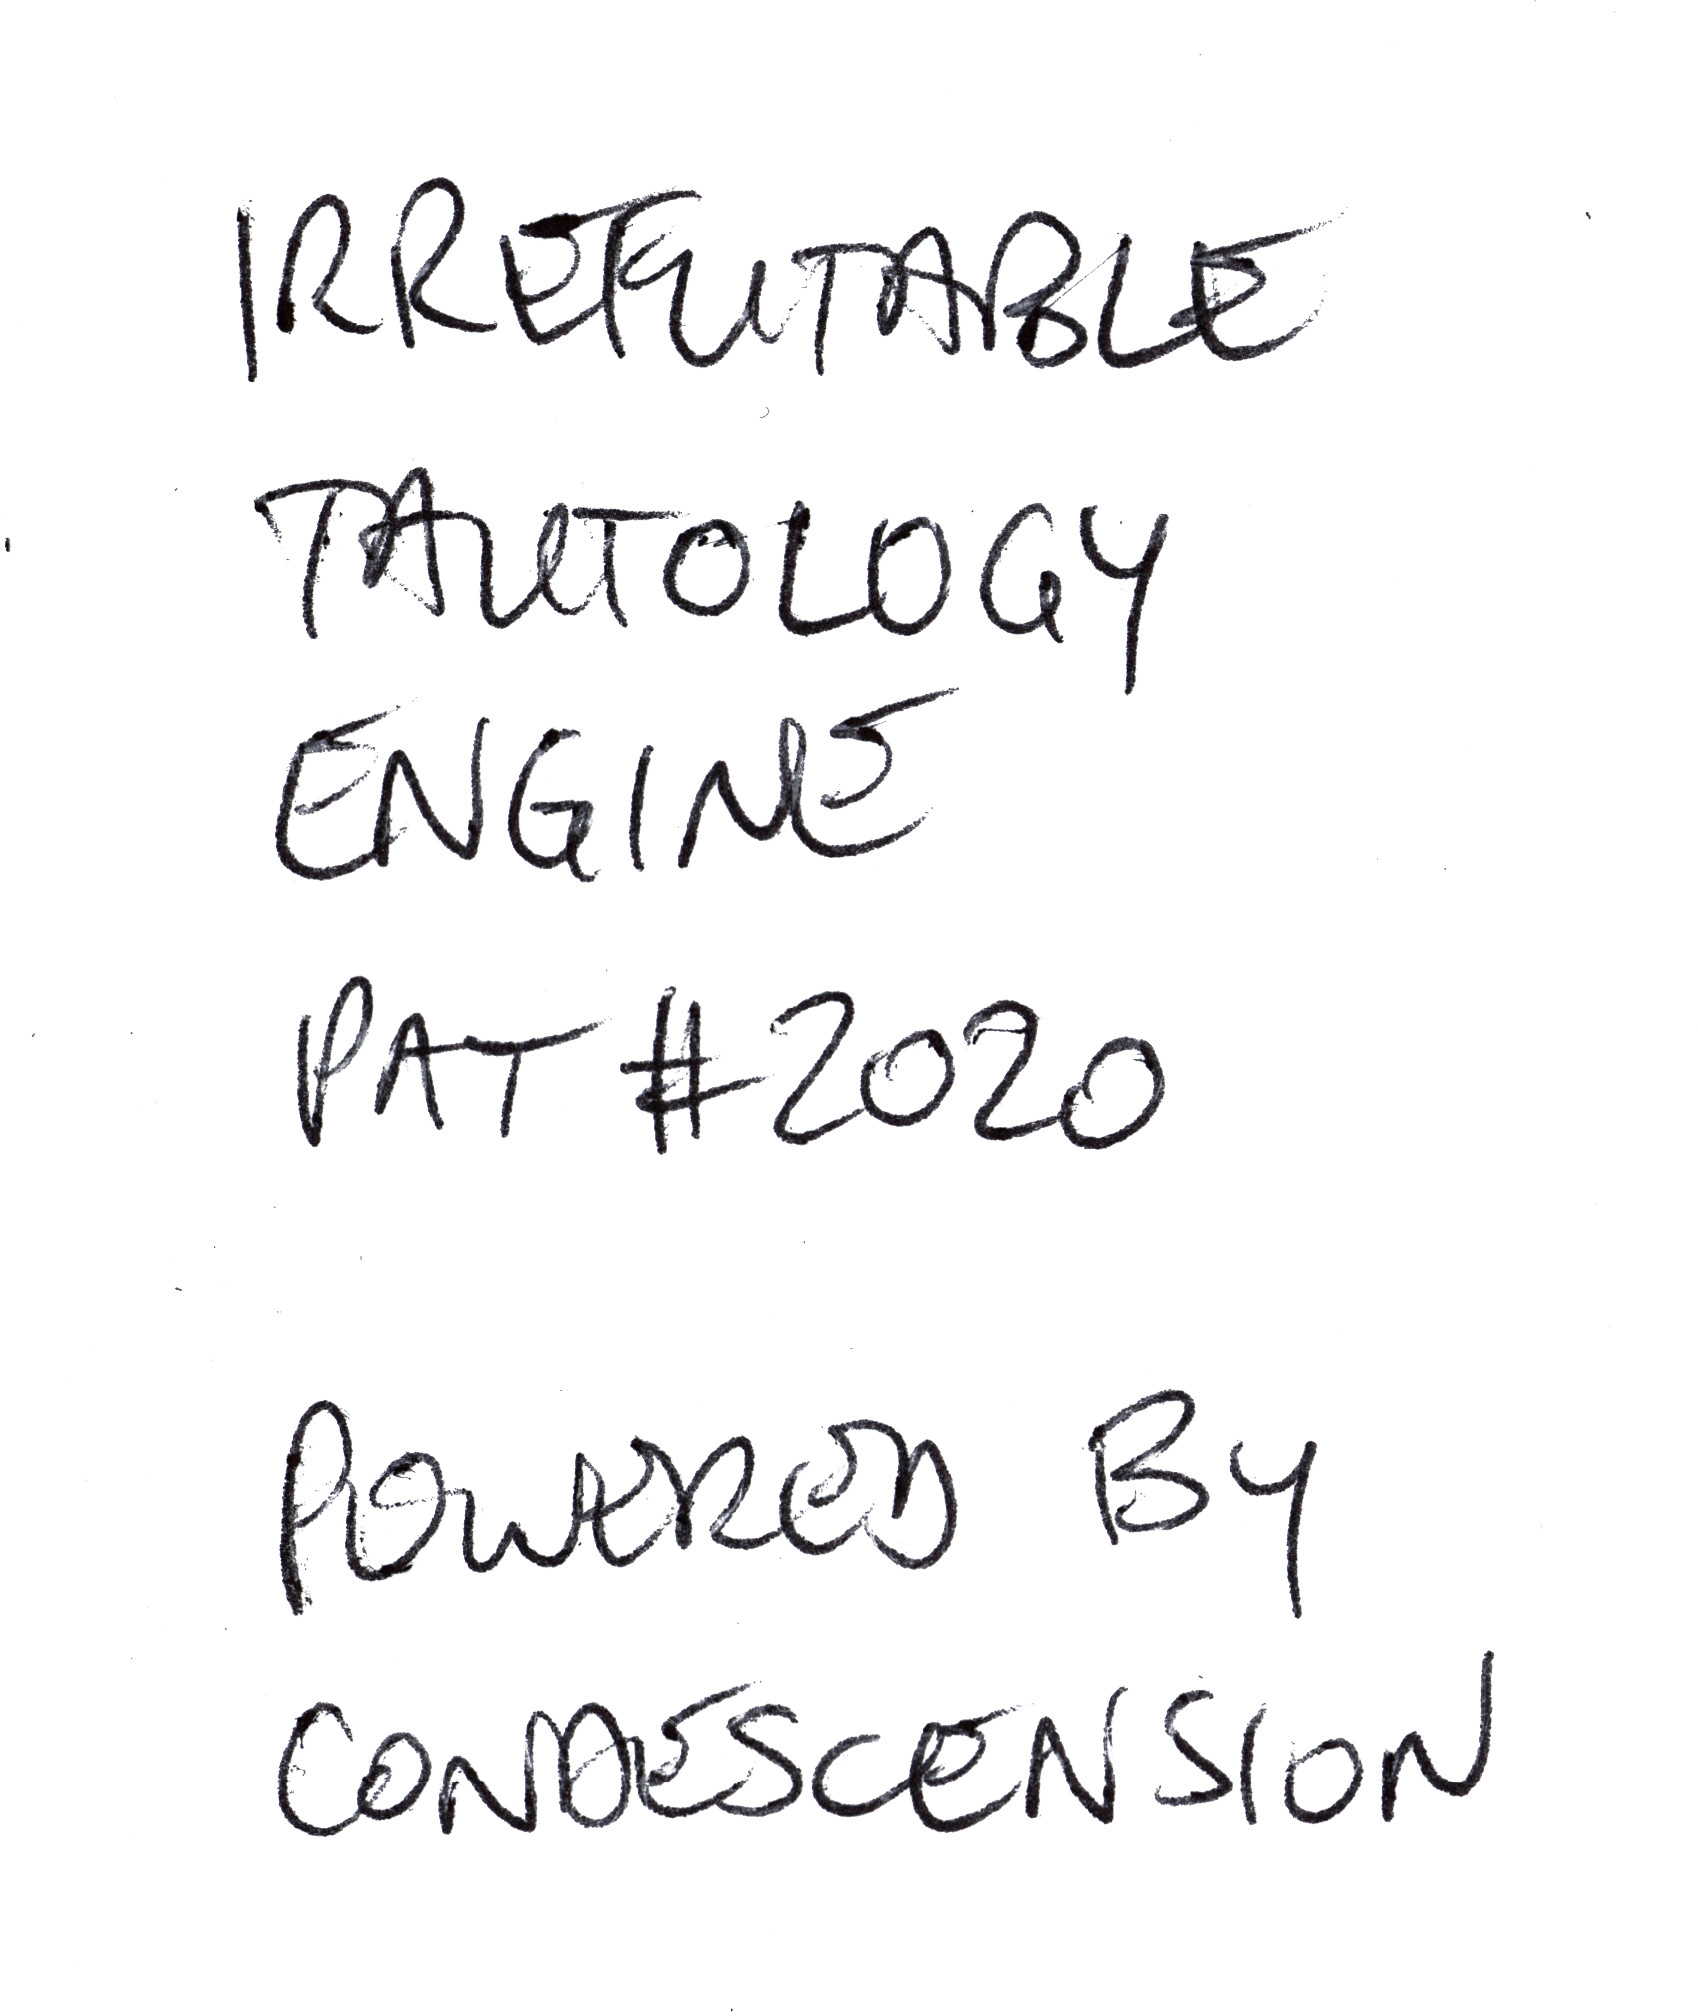 IRREFUTABLE
TAUTOLOGY
ENGINE
PAT #2020
POWERED BY
CONDESCENSION